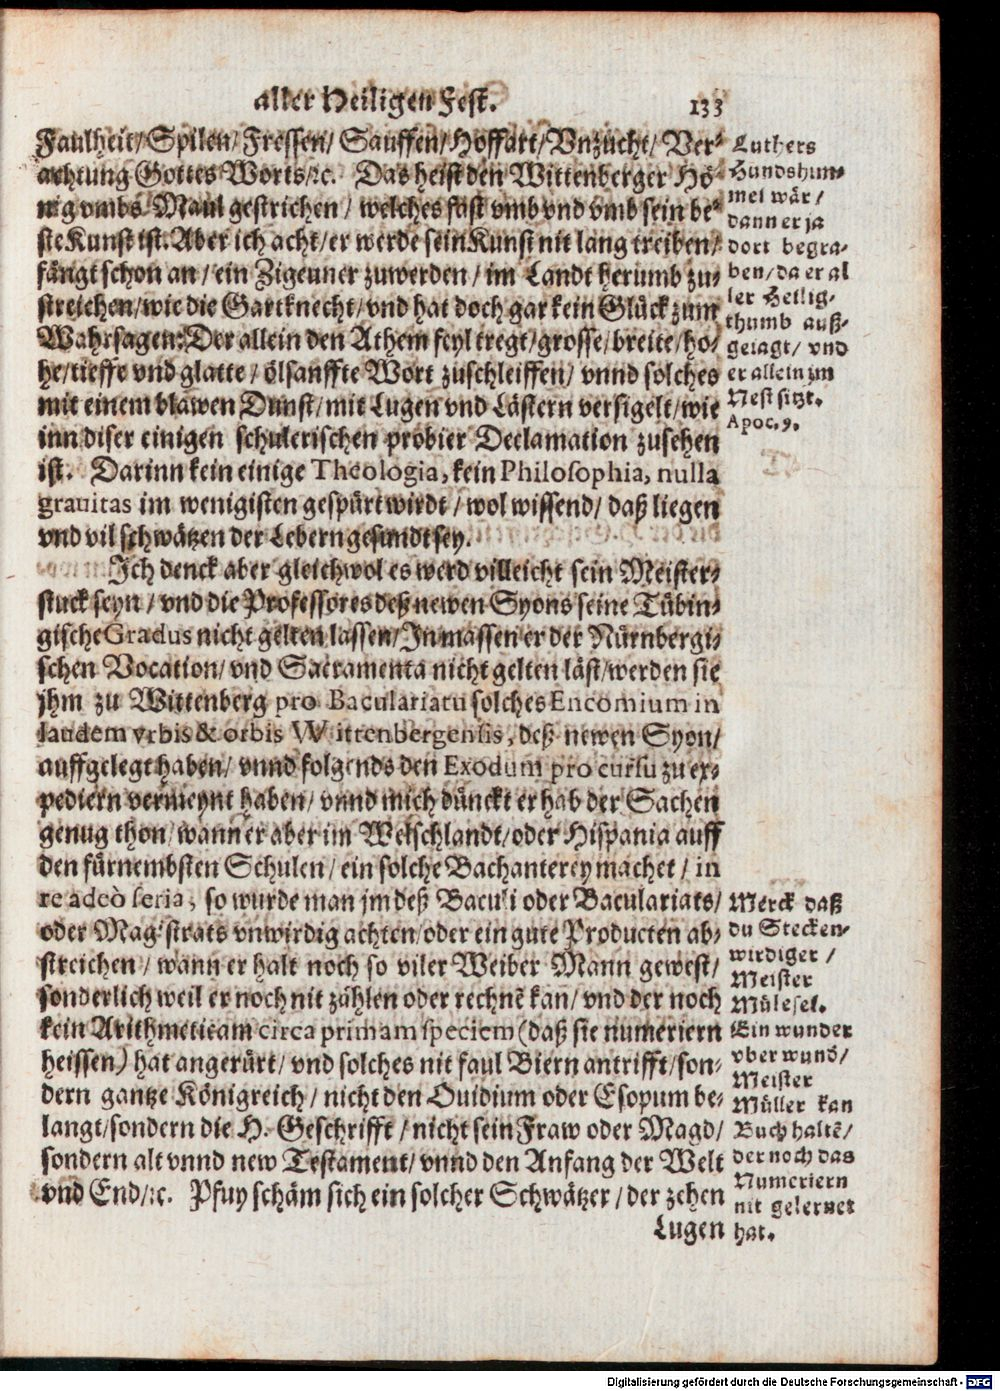 aller Heiligen Fest. 133
Faulheit/ Spilen/ Fressen/ Sauffen/ Hoffart/ Vnzucht/ Ver-
achtung Gottes Worts/ꝛc. Das heist den Wittenberger Hö-
nig vmbs Maul gestrichen / welches fast vmb vnd vmb sein be-
ste Kunst ist. Aber ich acht/ er werde sein Kunst nit lang treiben/
fängt schon an / ein Zigeuner zuwerden / im Landt herumb zu-
streichen/ wie die Gartknecht/ vnd hat doch gar kein Glück zum
Wahrsagen: Der allein den Athem feyl tregt/ grosse/ breite/ ho-
he/ tieffe vnd glatte / ölsanffte Wort zuschleiffen/ vnnd solches
mit einem blawen Dunst/ mit Lugen vnd Lästern versigelt/ wie
inn diser einigen schulerischen probier Declamation zusehen
ist. Darinn kein einige Theologia, kein Philosophia, nulla
grauitas im wenigisten gespürt wirdt / wol wissend/ daß liegen
vnd vil schwätzen der Lebern gesundt sey.
Ich denck aber gleichwol es werd villeicht sein Meister-
stuck seyn / vnd die Professores deß newen Syons seine Tübin-
gische Gradus nicht gelten lassen/ Inmassen er der Nürnbergi-
schen Vocation/ vnd Sacramenta nicht gelten läst/ werden sie
jhm zu Wittenberg pro Baculariatu solches Encomium in
laudem vrbis & orbis Wittenbergensis, deß newen Syon/
auffgelegt haben/ vnnd folgends den Exodum pro cursu zu ex-
pediern vermeynt haben/ vnnd mich dünckt er hab der Sachen
genug thon/ wann er aber im Welschlandt/ oder Hispania auff
den fürnembsten Schulen / ein solche Bachanterey machet / in
re adeò seria, so wurde man jm deß Baculi oder Baculariats/
oder Magistrats vnwirdig achten/ oder ein gute Producten ab-
streichen / wann er halt noch so viler Weiber Mann gewest/
sonderlich weil er noch nit zählen oder rechnē kan/ vnd der noch
kein Arithmeticam circa primam speciem (daß sie numeriern
heissen) hat angerürt/ vnd solches nit faul Biern antrifft/ son-
dern gantze Königreich / nicht den Ouidium oder Esopum be-
langt/ sondern die H. Geschrifft / nicht sein Fraw oder Magd/
sondern alt vnnd new Testament/ vnnd den Anfang der Welt
vnd End/ꝛc. Pfuy schäm sich ein solcher Schwätzer / der zehen
Lugen
Luthers
Hundshum-
mel wär /
dann er ja
dort begra-
ben/ da er al
ler Heilig-
thumb auß-
gejagt/ vnd
er allein im
Nest sitzt.
Apoc. 9.
Merck daß
du Stecken-
wirdiger /
Meister
Mülesel.
Ein wunder
vber wund/
Meister
Müller kan
Buch haltē/
der noch das
Numeriern
nit gelernet
hat.
Digitalisierung gefördert durch die Deutsche Forschungsgemeinschaft - DFG